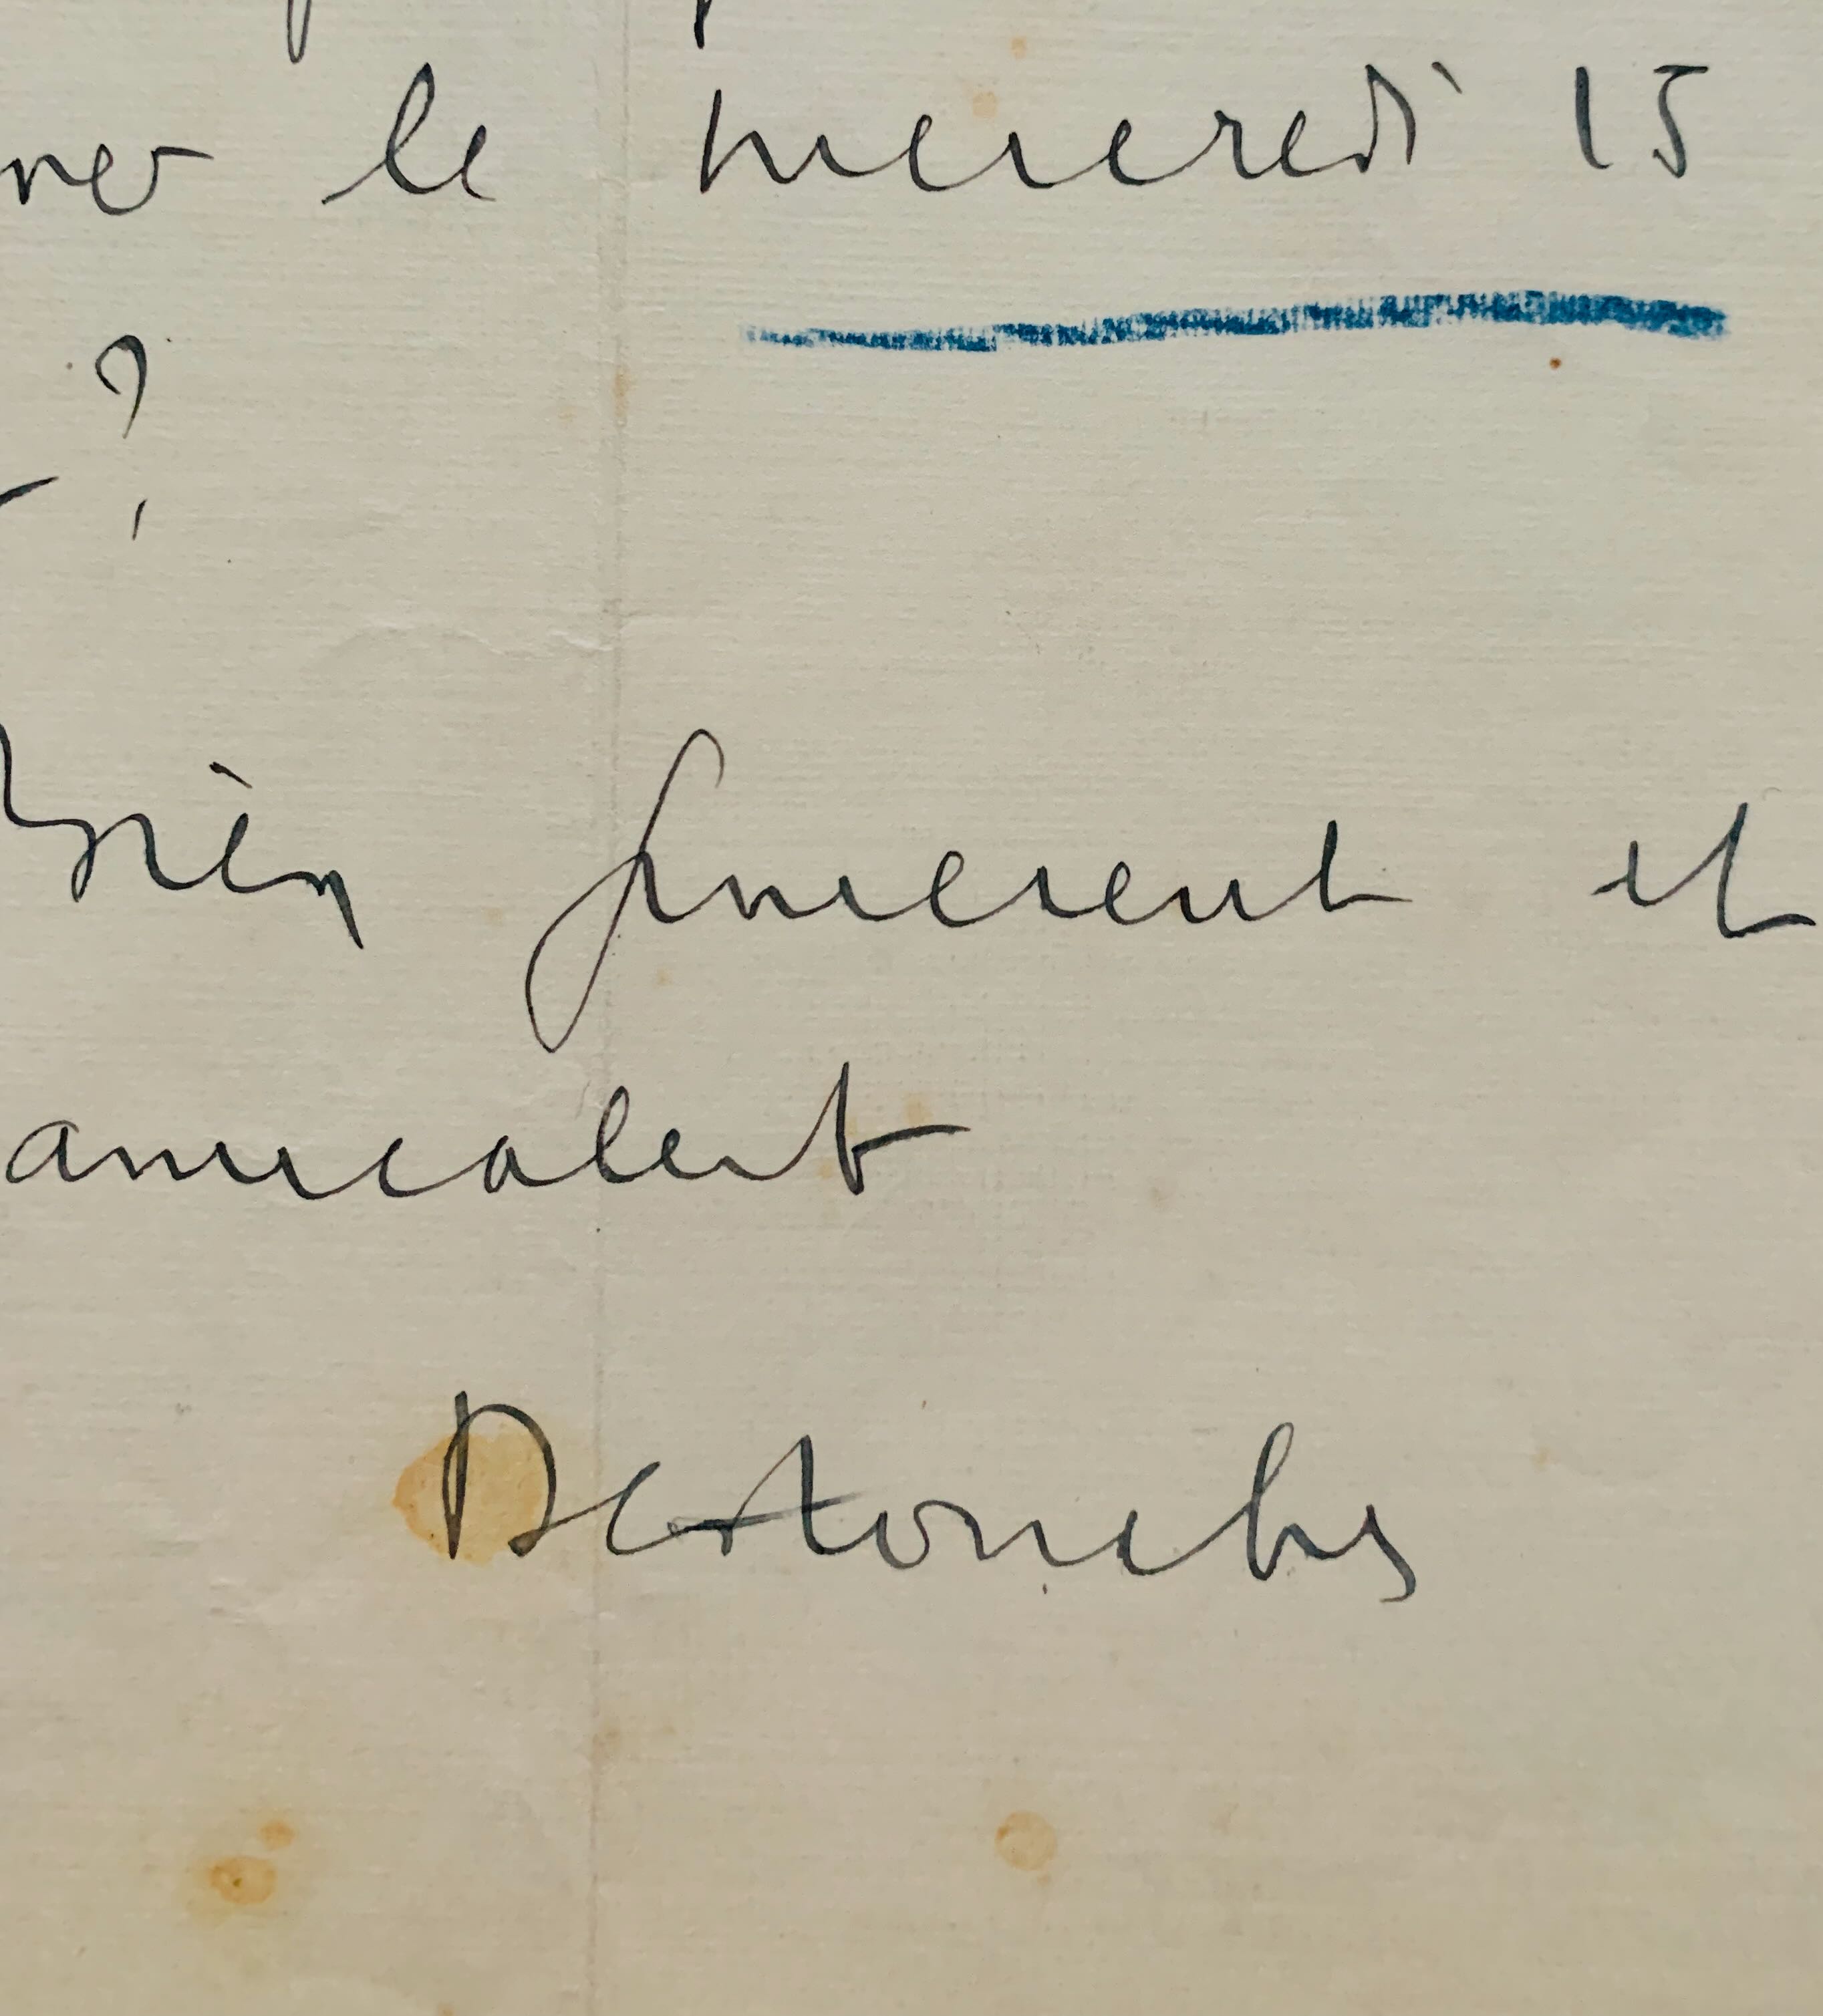 ner le mercredi 15
?
Bien sincerement et
amicalent
Destouches